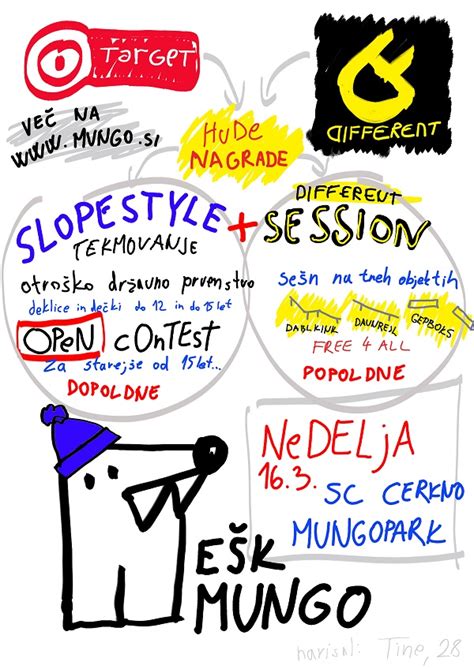 TARGET
DIFFERENT
VEČ NA
WWW.MUNGO.SI
HUDE
NAGRADE
SLOPESTYLE
TEKMOVANJE
otroško državno prvenstvo
deklice in dečki do 12 in do 15 let
OPEN CONTEST
Za starejše od 15 let...
DOPOLDNE
+
DIFFERENT
SESSION
Sešn na treh objektih
DABLKINK
DAUNREJL
GEPBOKS
FREE 4 ALL
POPOLDNE
NEDELJA
16.3.
SC CERKNO
MUNGOPARK
EŠK
MUNGO
narisal: Tine, 28